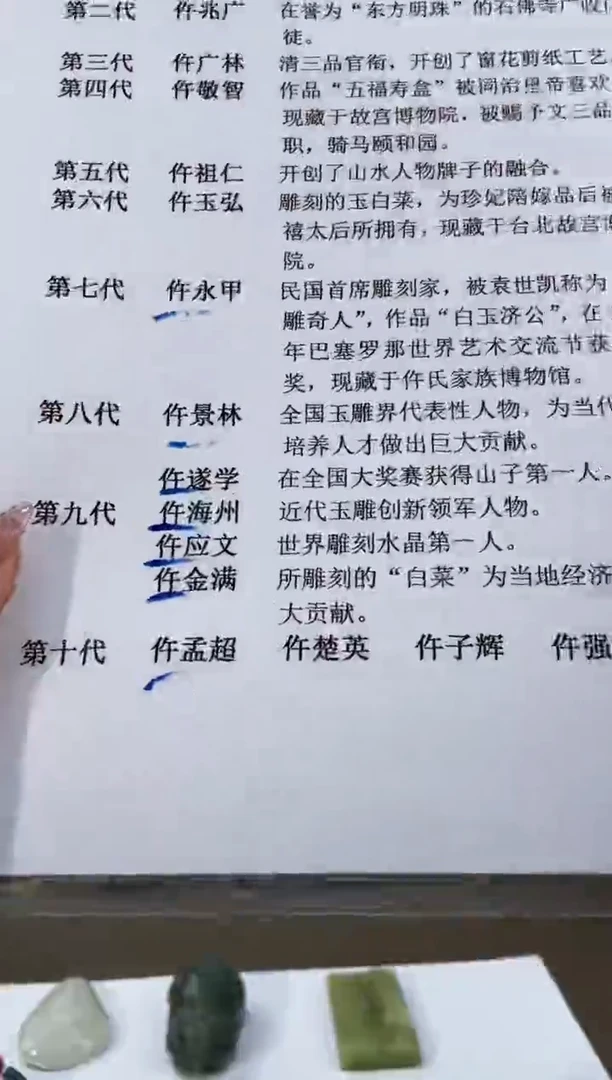 第二代 仵兆广 在誉为“东方明珠”的石佛寺广收
徒。
第三代 仵广林 清三品官衔，开创了窗花剪纸工艺
第四代 仵敬智 作品“五福寿盒”被同治皇帝喜欢
现藏于故宫博物院．被赐予文三品
职，骑马颐和园。
第五代 仵祖仁 开创了山水人物牌子的融合。
第六代 仵玉弘 雕刻的玉白菜，为珍妃陪嫁品后被
禧太后所拥有，现藏于台北故宫博
院。
第七代 仵永甲 民国首席雕刻家，被袁世凯称为
雕奇人”，作品“白玉济公”，在
年巴塞罗那世界艺术交流节获
奖，现藏于仵氏家族博物馆。
第八代 仵景林 全国玉雕界代表性人物，为当代
培养人才做出巨大贡献。
仵遂学 在全国大奖赛获得山子第一人。
第九代 仵海州 近代玉雕创新领军人物。
仵应文 世界雕刻水晶第一人。
仵金满 所雕刻的“白菜”为当地经济
大贡献。
第十代 仵孟超 仵楚英 仵子辉 仵强